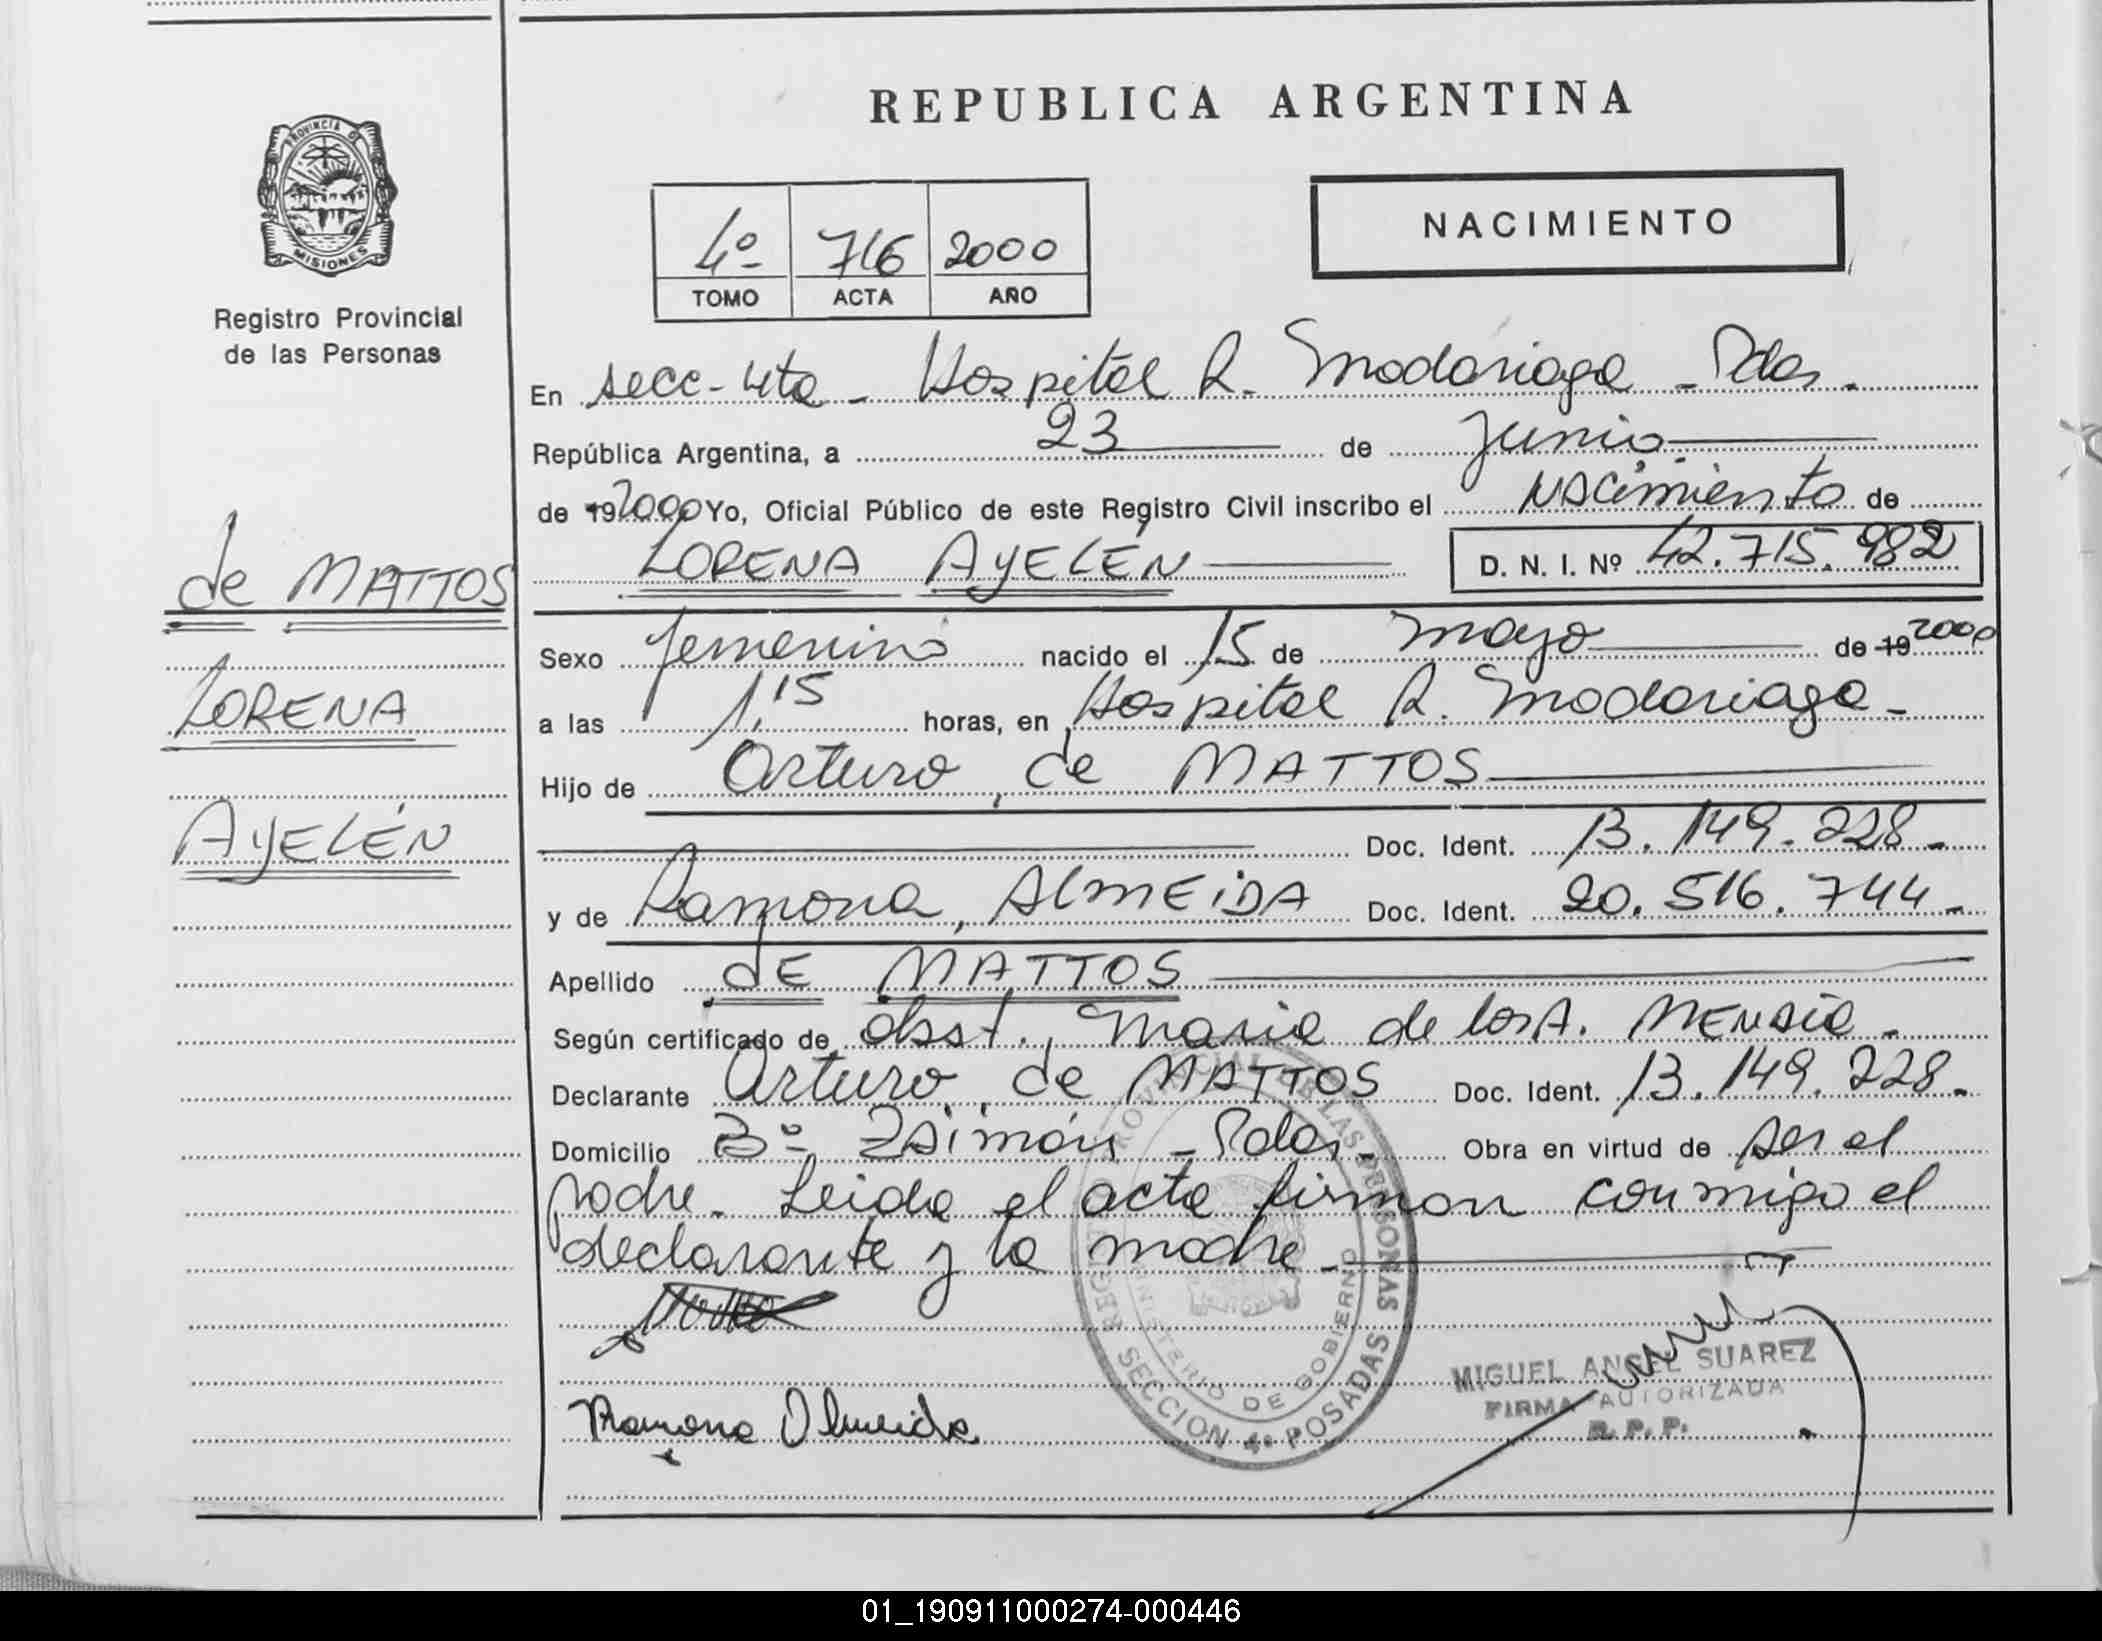 REPUBLICA ARGENTINA
PROVINCIA DE MISIONES
Registro Provincial
de las Personas
NACIMIENTO
4º 716 2000
TOMO ACTA AÑO
En secc-4ta - Hospital R. Madariaga - Pdas.
República Argentina, a 23 de Junio
de 192000 Yo, Oficial Público de este Registro Civil inscribo el Nacimiento de
LORENA AYELÉN D. N. I. Nº 42.715.982
de MATTOS
LORENA
AYELÉN
Sexo femenino nacido el 15 de mayo de 19 2000
a las 1,15 horas, en Hospital R. Madariaga -
Hijo de Arturo, de MATTOS
Doc. Ident. 13.149.228.-
y de Ramona, ALMEIDA Doc. Ident. 20.516.744.-
Apellido dE MATTOS
Según certificado de obst. Maria de los A.
Declarante Arturo, de MATTOS Doc. Ident. 13.149.228.-
Domicilio Bº Zaimán - Pdas. Obra en virtud de ser el
padre. Leida el acta firman conmigo el
declarante y la madre.-
Ramona Almeida
REGISTRO PROVINCIAL DE LAS PERSONAS
MINISTERIO DE GOBIERNO
SECCION 4º POSADAS
MIGUEL ANGEL SUAREZ
FIRMA AUTORIZADA
R. P. P.
01_190911000274-000446